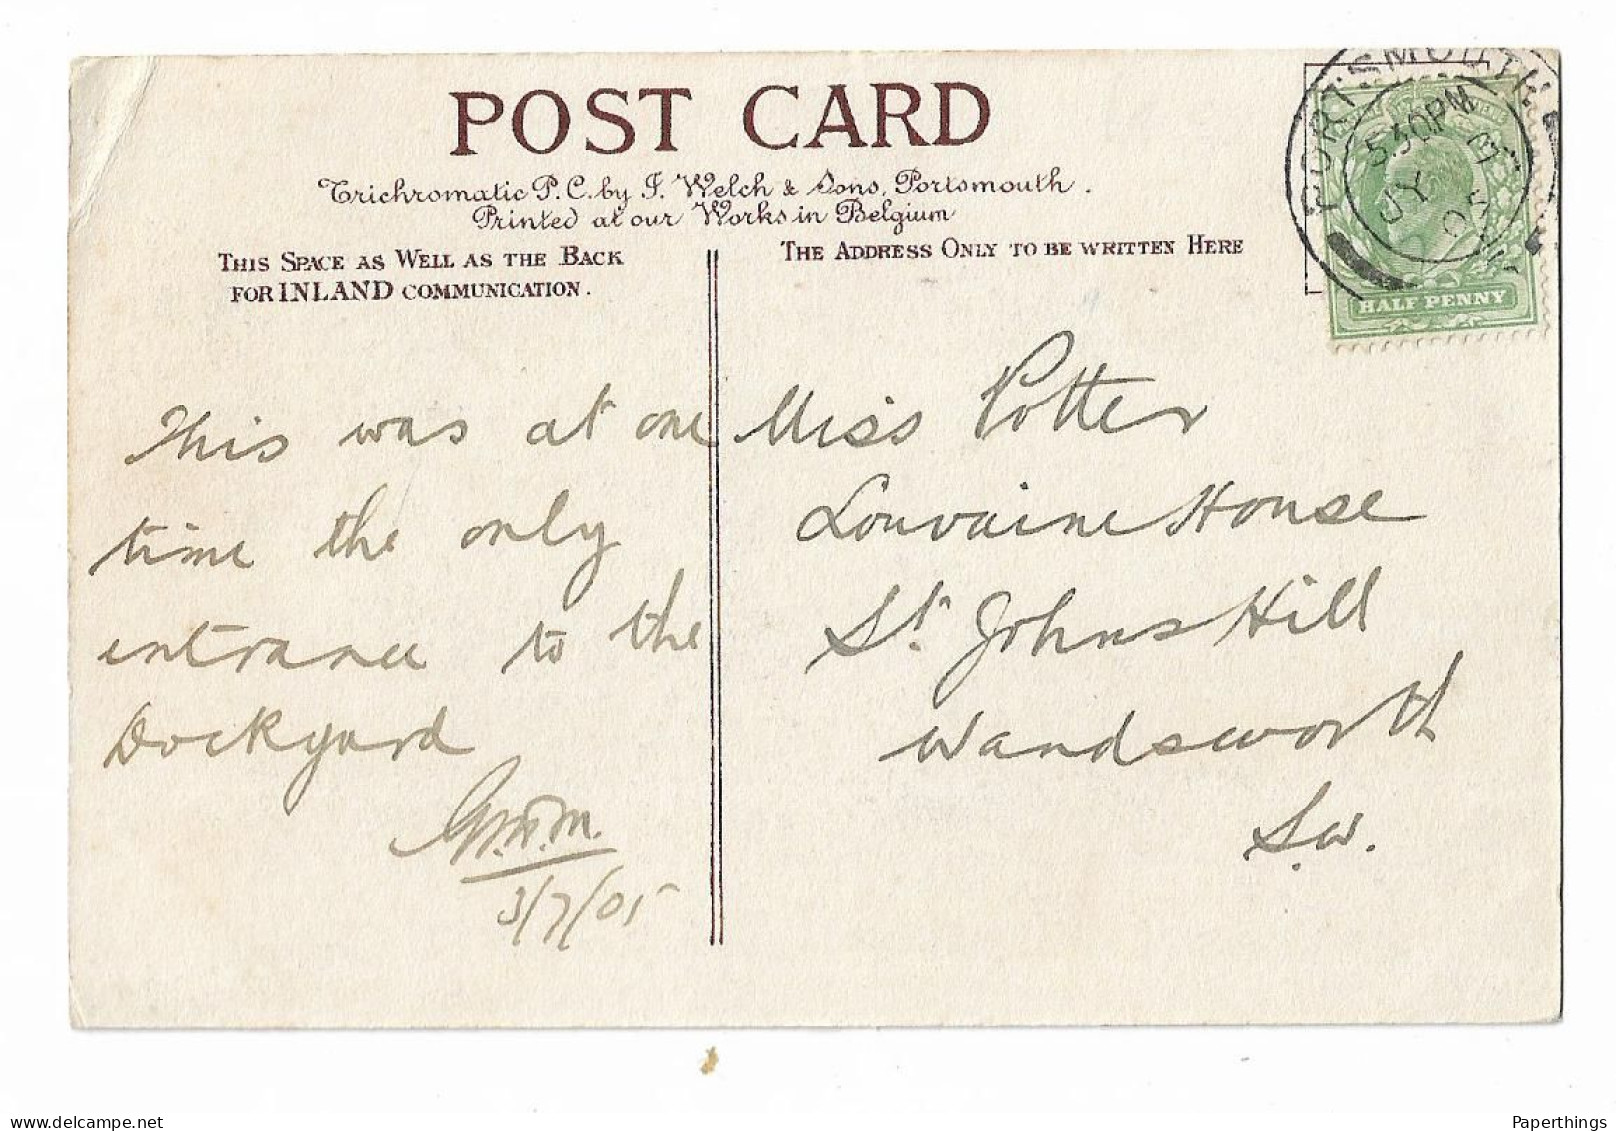 POST CARD
Trichromatic P.C. by J. Welch & Sons, Portsmouth.
Printed at our Works in Belgium
THIS SPACE AS WELL AS THE BACK
FOR INLAND COMMUNICATION.
THE ADDRESS ONLY TO BE WRITTEN HERE
PORTSMOUTH
5.30PM
JY
05
HALF PENNY
This was at one
time the only
entrance to the
Dockyard
3/7/05
Miss Potter
Louvaine House
St. Johns Hill
Wandsworth
S.W.
Paperthings